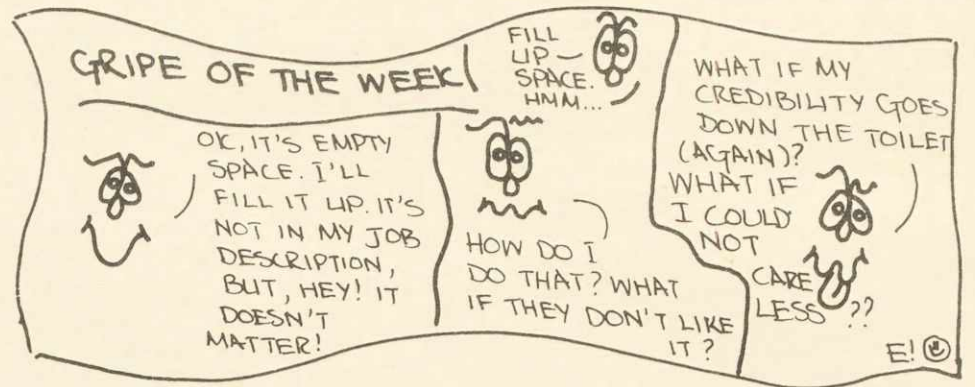 GRIPE OF THE WEEK
OK, IT'S EMPTY
SPACE. I'LL
FILL IT UP. IT'S
NOT IN MY JOB
DESCRIPTION,
BUT, HEY! IT
DOESN'T
MATTER!
FILL
UP—
SPACE.
HMM...
HOW DO I
DO THAT? WHAT
IF THEY DON'T LIKE
IT?
WHAT IF MY
CREDIBILITY GOES
DOWN THE TOILET
(AGAIN)?
WHAT IF
I COULD
NOT
CARE
LESS ??
E!